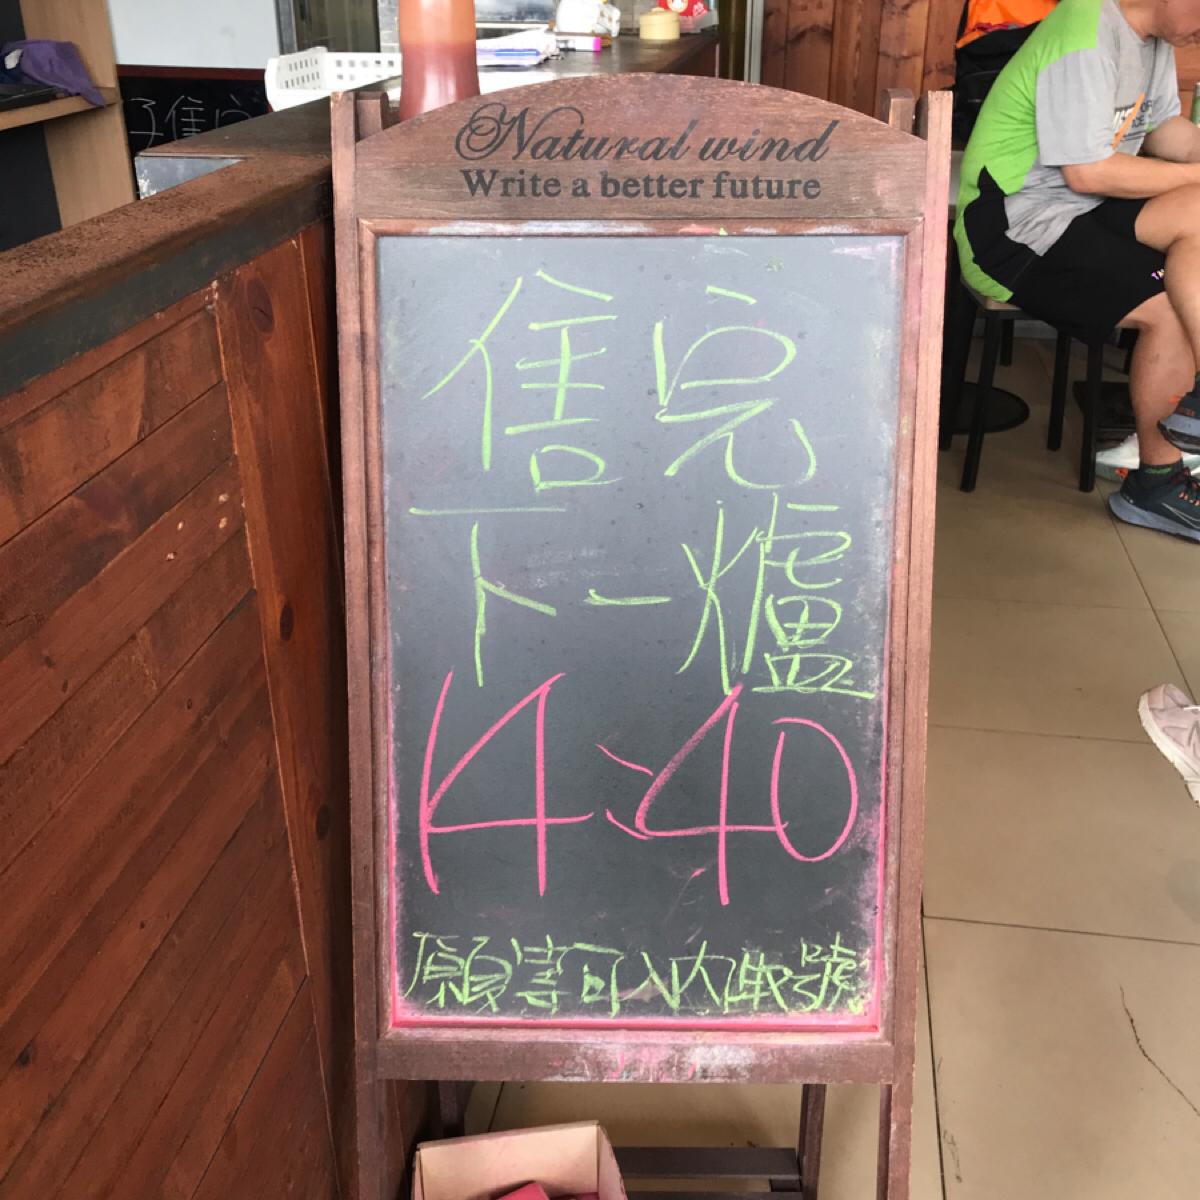 Natural wind
Write a better future
售完
下一爐
14:40
願等可入內取號